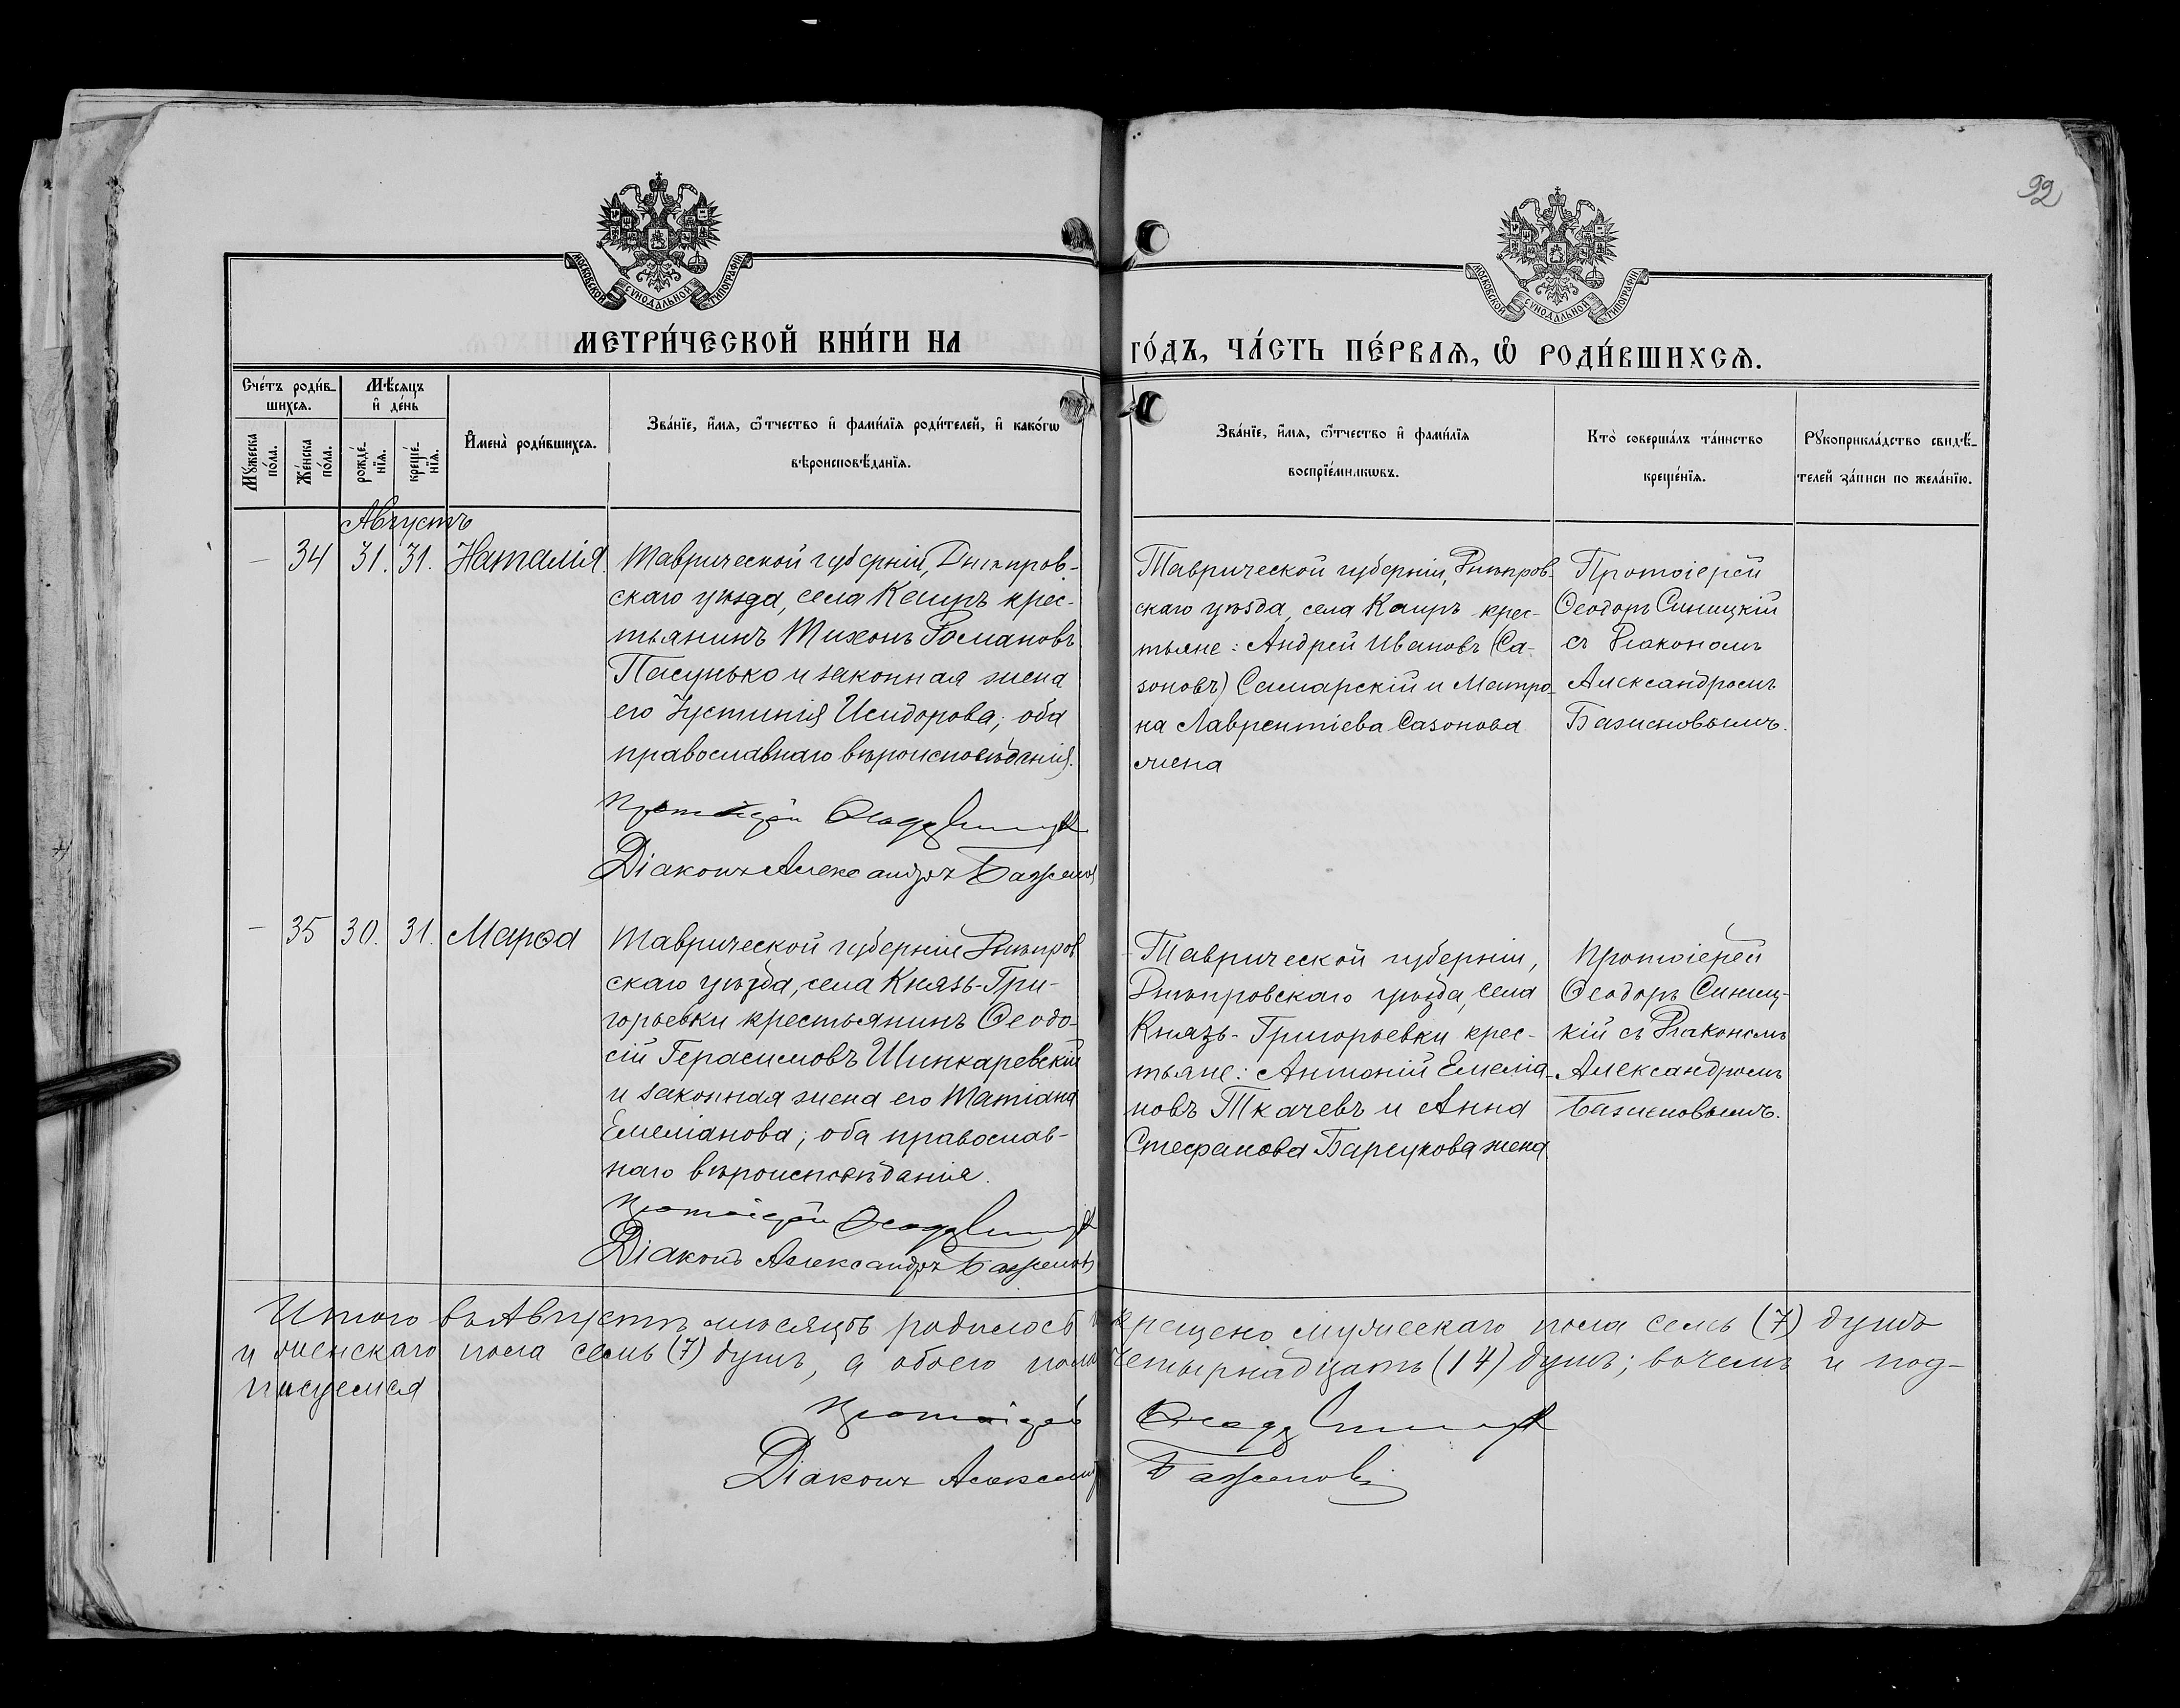 92
МОСКОВСКОЙ СѴНОДАЛЬНОЙ ТИПОГРАФІИ
МОСКОВСКОЙ СѴНОДАЛЬНОЙ ТИПОГРАФІИ
МЕТРИ́ЧЕСКОЙ КНИ́ГИ НА ГО́ДЪ, ЧА́СТЬ ПЕ́РВАѦ, Ѡ҆ РОДИ́ВШИХСѦ.
Сче́тъ роди́в-
шихсѧ.
Мѣ́сѧцъ
и҆ де́нь
Мꙋ́жеска
по́ла.
Же́нска
по́ла.
рожде́-
нїѧ.
креще́-
нїѧ.
И҆мена̀ роди́вшихсѧ.
Зва́нїе, и҆́мѧ, ѻ҆́тчество и҆ фами́лїѧ роди́телей, и҆ како́гѡ
вѣроисповѣ́данїѧ.
Зва́нїе, и҆́мѧ, ѻ҆́тчество и҆ фами́лїѧ
воспрїе́мникѡвъ.
Кто̀ соверша́лъ та́инство
креще́нїѧ.
Рꙋкоприкла́дство свидѣ́-
телей за́писи по жела́нїю.
Августъ
— 34 31. 31. Наталія.
Таврической губерніи, Днѣпров-
скаго уѣзда, села Каиръ крес-
тьянинъ Тихонъ Романовъ
Пасунько и законная жена
его Іустинія Исидорова; оба
православнаго вѣроисповѣданія.
Протоіерей Ѳеодоръ Синицкій
Діаконъ Александръ Баженовъ
Таврической губерніи, Днѣпров-
скаго уѣзда, села Каиръ крес-
тьяне: Андрей Ивановъ (Са-
зоновъ) Самарскій и Матро-
на Лаврентіева Сазонова
жена
Протоіерей
Ѳеодоръ Синицкій
съ Діакономъ
Александромъ
Баженовымъ.
— 35 30. 31. Марѳа
Таврической губерніи Днѣпров
скаго уѣзда, села Князь-Гри-
горьевки крестьянинъ Ѳеодо-
сій Герасимовъ Шинкаревскій
и законная жена его Татіана
Емеліанова; оба православ-
наго вѣроисповѣданія.
Протоіерей Ѳеодоръ Синицкій
Діаконъ Александръ Баженовъ
Таврической губерніи,
Днѣпровскаго уѣзда, села
Князь-Григорьевки крес-
тьяне: Антоній Емеліа-
новъ Ткачевъ и Анна
Стефанова Барсукова жена
Протоіерей
Ѳеодоръ Синиц-
кій съ Діакономъ
Александромъ
Баженовымъ.
Итого въ Августѣ мѣсяцѣ родилось и крещено мужескаго пола семь (7) душъ
и женскаго пола семь (7) душъ, а обоего пола четырнадцать (14) душъ; в чемъ и под-
писуемся
Протоіерей Ѳеодоръ Синицкій
Діаконъ Александръ Баженовъ